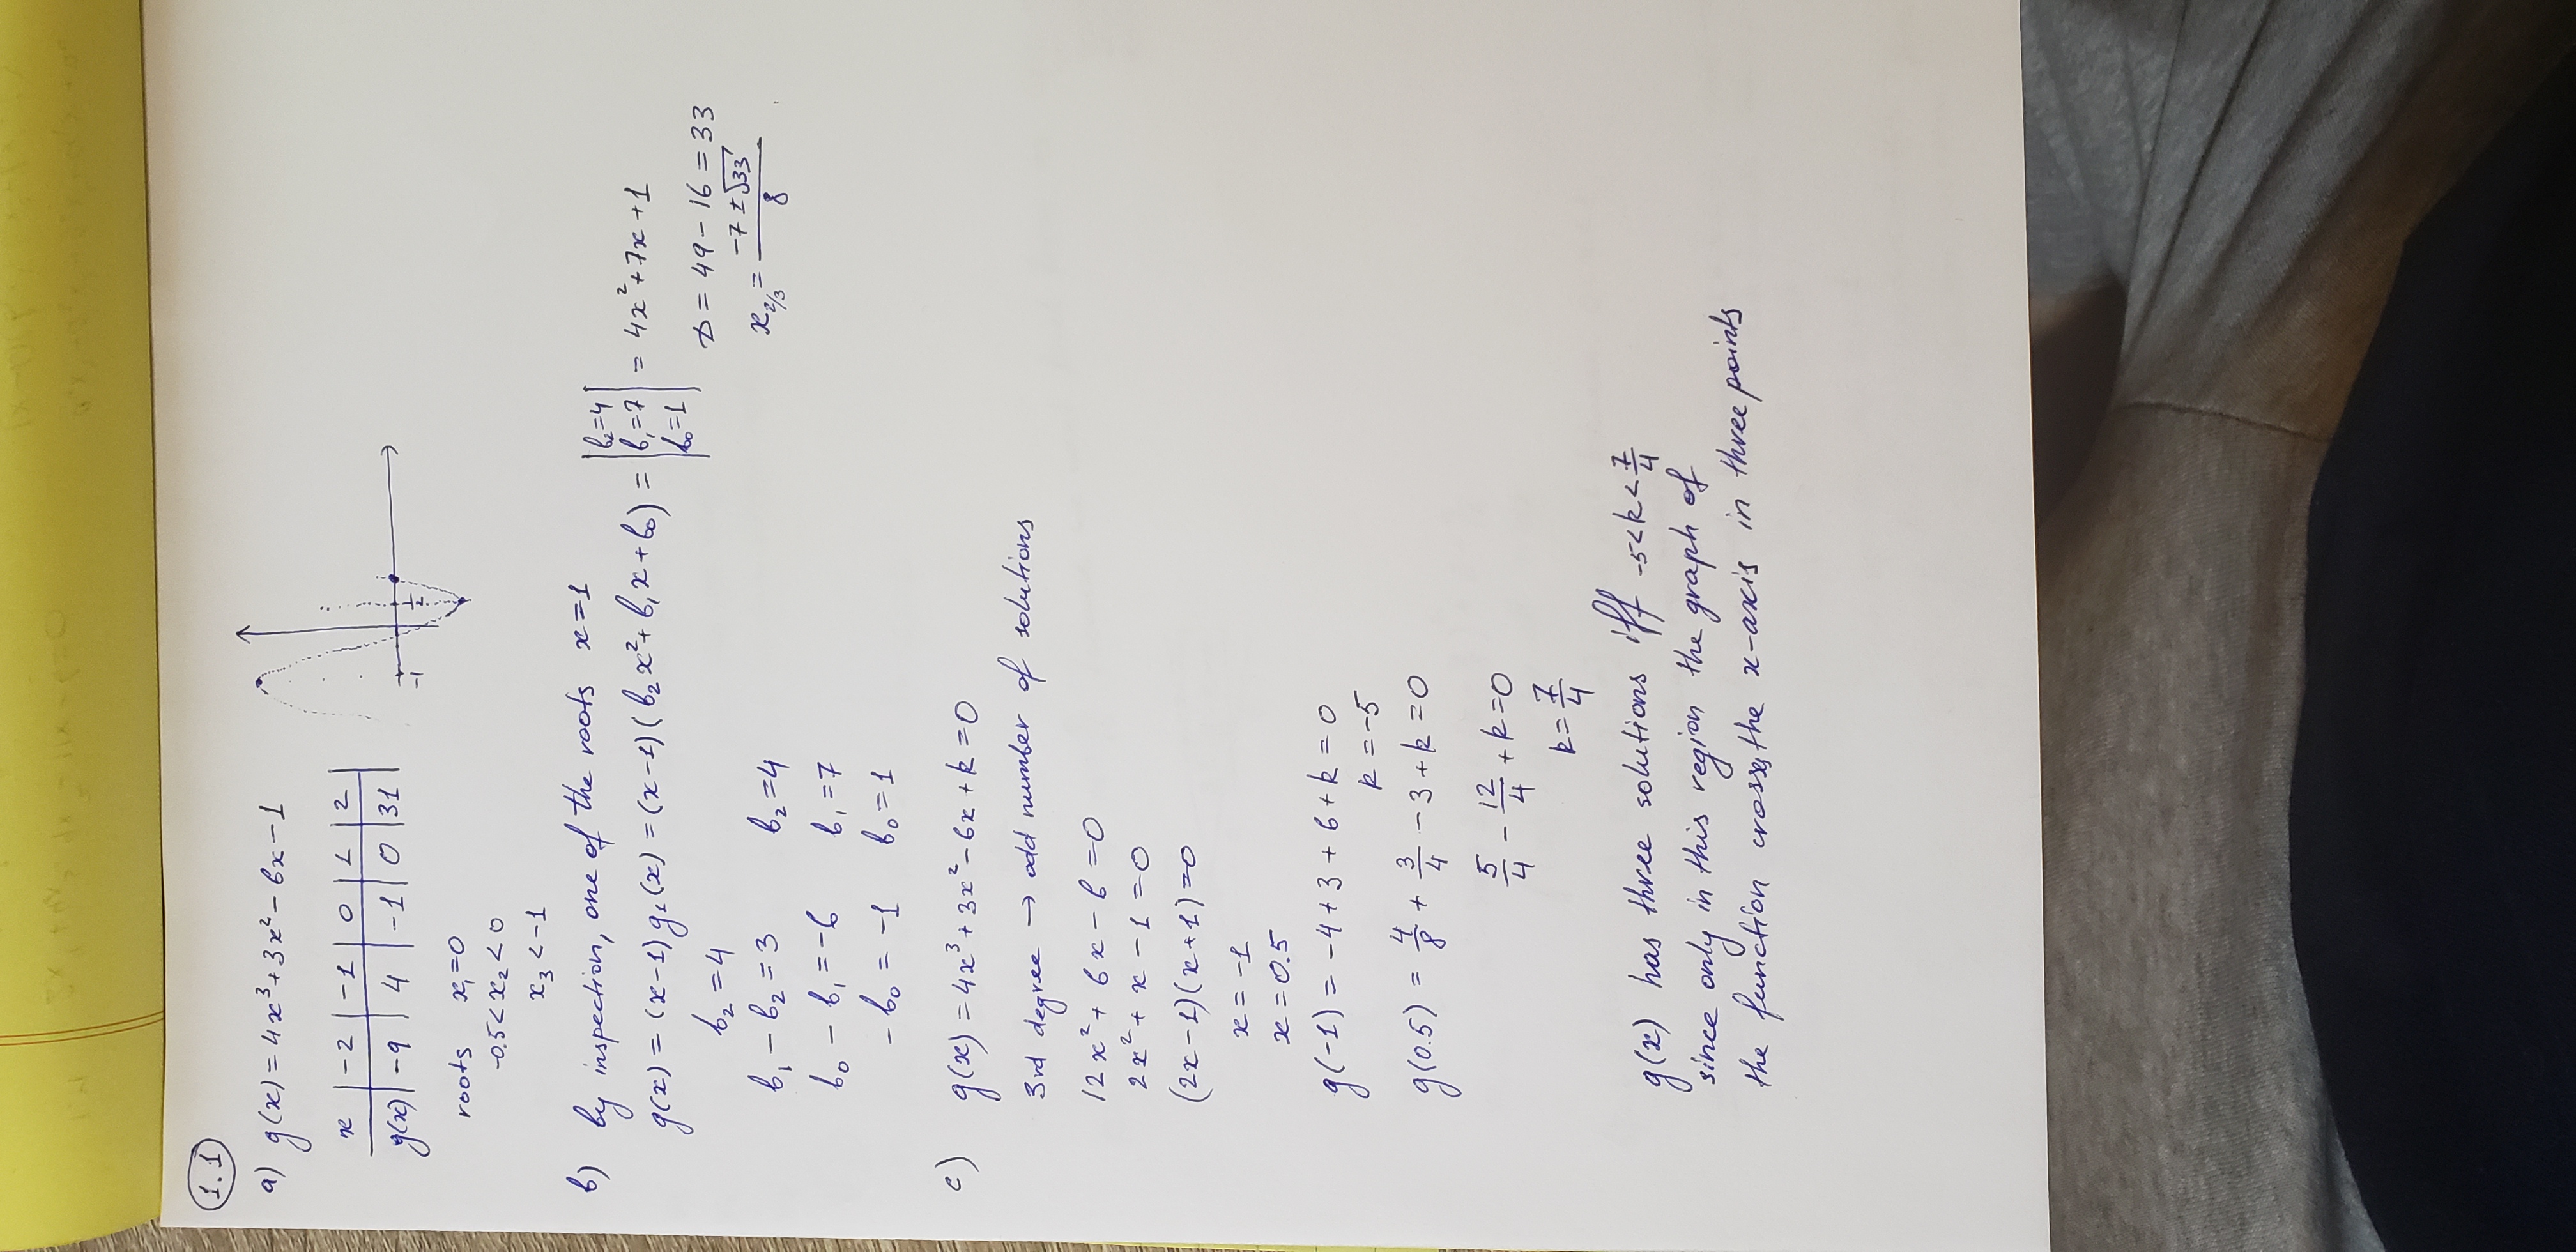 1.1
a) g(x) = 4x³ + 3x² - 6x - 1
x | -2 | -1 | 0 | 1 | 2
g(x) | -9 | 4 | -1 | 0 | 31
-1 1/2
roots x₁ = 0
-0.5 < x₂ < 0
x₃ < -1
b) by inspection, one of the roots x = 1
g(x) = (x-1) g₁(x) = (x-1)(b₂x² + b₁x + b₀) = | b₂=4 b₁=7 b₀=1 | = 4x² + 7x + 1
D = 49 - 16 = 33
x₂/₃ = (-7 ± √33)/8
b₂ = 4
b₁ - b₂ = 3 b₂ = 4
b₀ - b₁ = -6 b₁ = 7
- b₀ = -1 b₀ = 1
c) g(x) = 4x³ + 3x² - 6x + k = 0
3rd degree → odd number of solutions
12x² + 6x - 6 = 0
2x² + x - 1 = 0
(2x-1)(x+1) = 0
x = -1
x = 0.5
g(-1) = -4 + 3 + 6 + k = 0
k = -5
g(0.5) = 4/8 + 3/4 - 3 + k = 0
5/4 - 12/4 + k = 0
k = 7/4
g(x) has three solutions iff -5 < k < 7/4
since only in this region the graph of
the function crosses the x-axis in three points